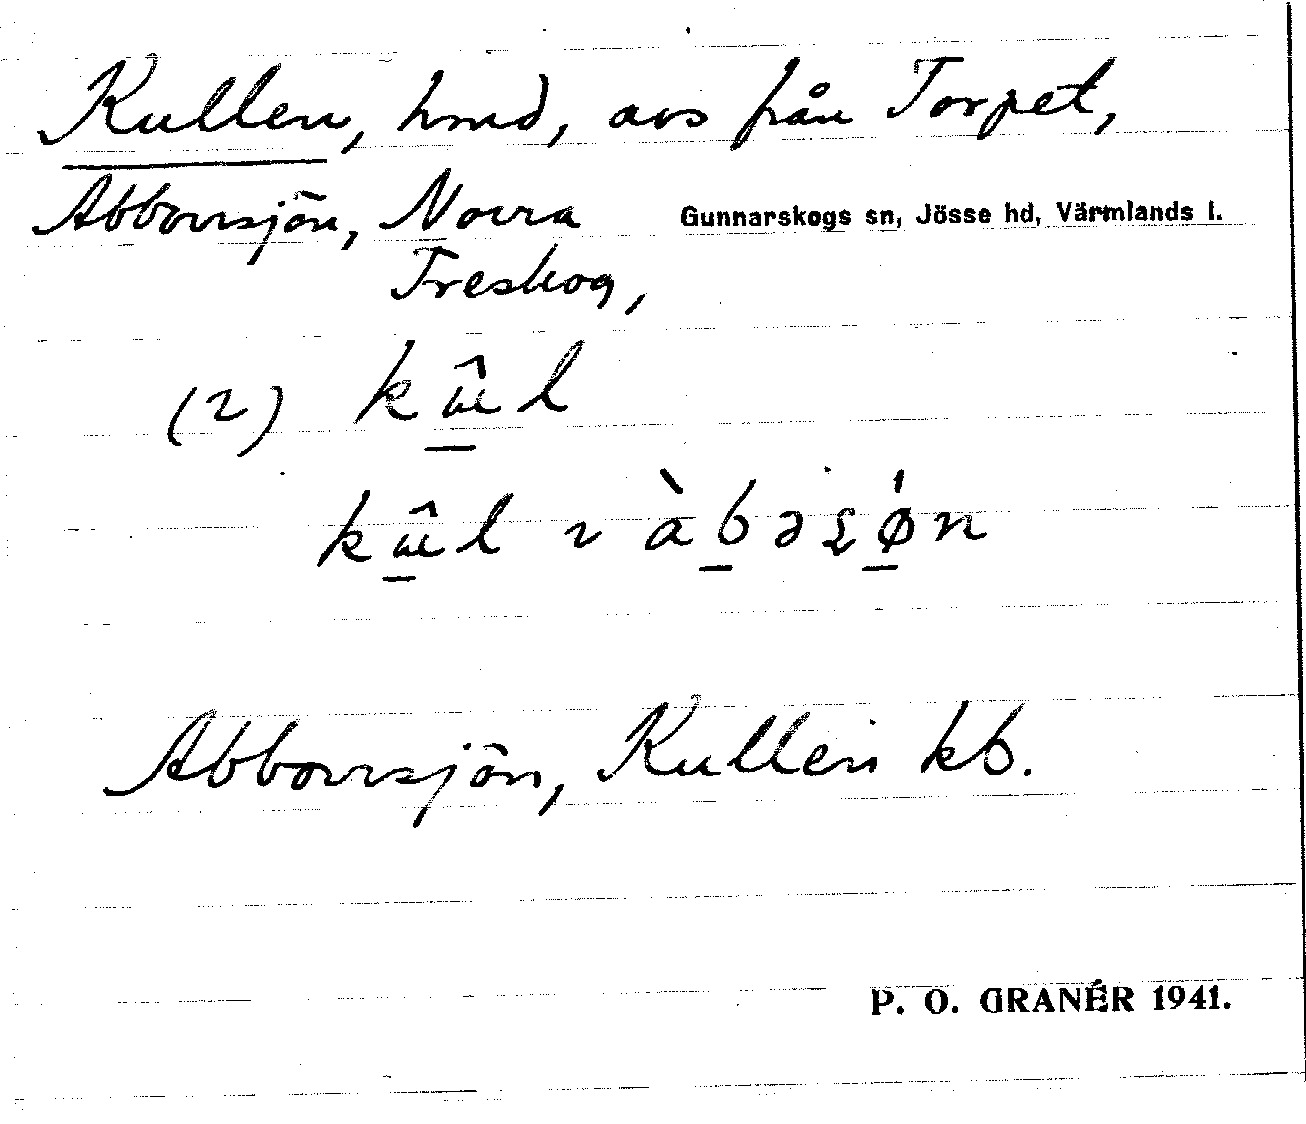 Kullen, hmd, avs från Torpet,
Abborrsjön, Norra Gunnarskogs sn, Jösse hd, Värmlands l.
Treskog,
(2) kɯ̂l
kɯ̂l ɿ àbəʂǿn
Abborrsjön, Kullen kb.
P. O. GRANÉR 1941.